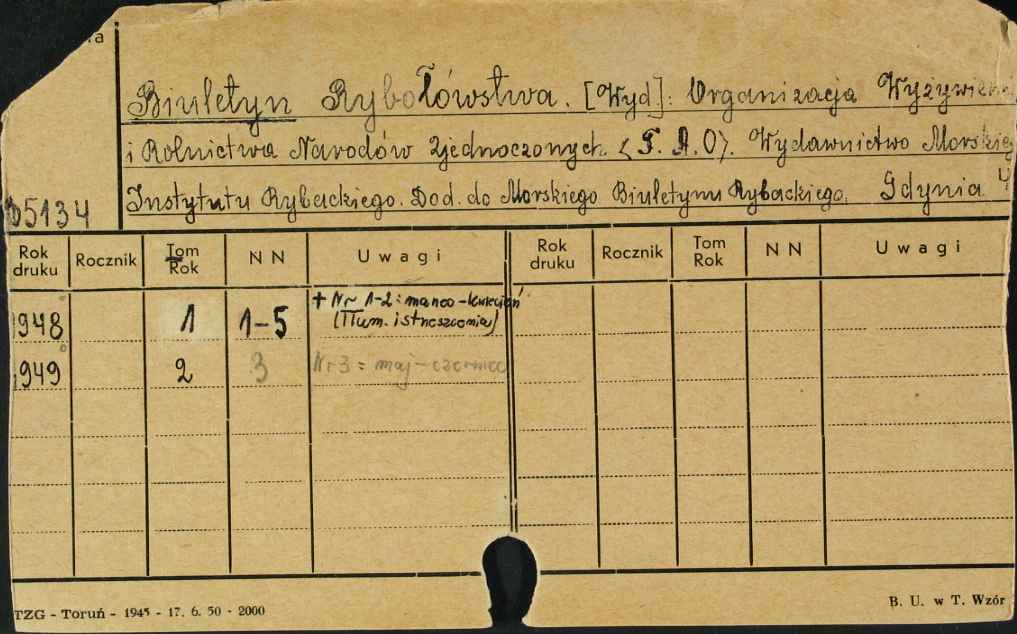 Biuletyn Rybołówstwa. [Wyd]: Organizacja Wyżywien
i Rolnictwa Narodów Zjednoczonych <F. A. O>. Wydawnictwo Morskieg
05134 Instytutu Rybackiego. Dod. do Morskiego Biuletynu Rybackiego. Gdynia 4
Rok druku Rocznik Tom Rok N N Uwagi Rok druku Rocznik Tom Rok N N Uwagi
+ Nr 1-2: marzec-kwiecień
1948 1 1-5 (Tłum. i streszczenia)
1949 2 3 Nr 3 = maj-czerwiec
TZG - Toruń - 1945 - 17. 6. 50 - 2000 B. U. w T. Wzór